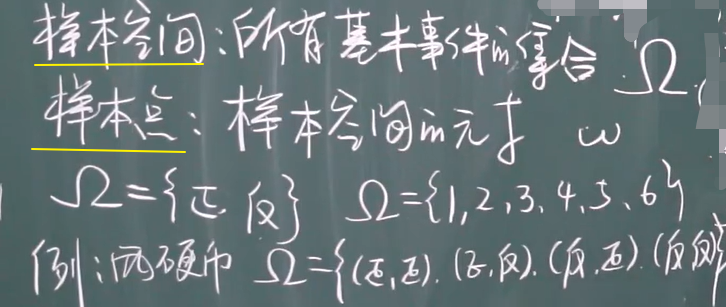 样本空间:所有基本事件的集合 Ω
样本点:样本空间的元素 ω
Ω={正 反} Ω={1,2,3,4,5,6}
例:两硬币 Ω={(正,正).(正,反).(反,正).(反,反)}